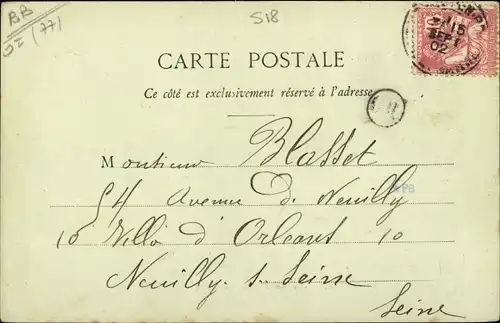 BB
(77)
518
15
SEPT
02
10
CARTE POSTALE
Ce côté est exclusivement réservé à l'adresse
Monsieur Blasset
54 Avenue de Neuilly
10 Villa d'Orleans 10
Neuilly s. Seine
Seine